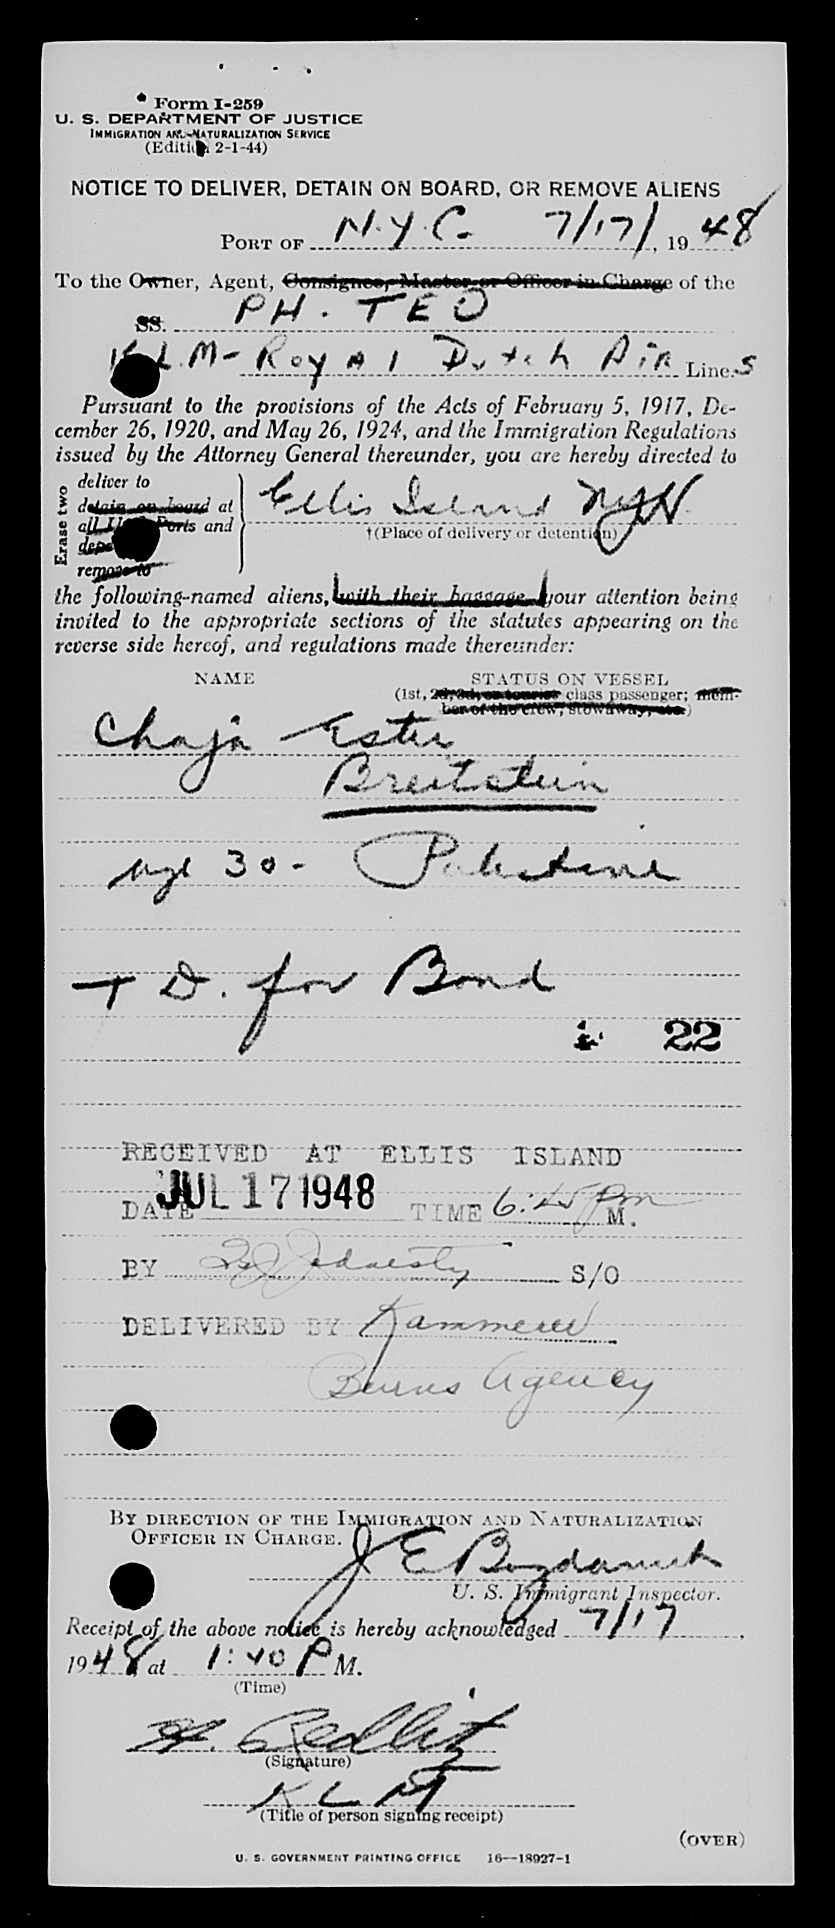 Form I-259
U. S. DEPARTMENT OF JUSTICE
IMMIGRATION AND NATURALIZATION SERVICE
(Edition 2-1-44)
NOTICE TO DELIVER, DETAIN ON BOARD, OR REMOVE ALIENS
PORT OF N.Y.C. 7/17/, 1948
To the Owner, Agent, Consignee, Master or Officer in Charge of the
SS. PH. TEO
K.L.M- Royal Dutch Air Lines
Pursuant to the provisions of the Acts of February 5, 1917, De-
cember 26, 1920, and May 26, 1924, and the Immigration Regulations
issued by the Attorney General thereunder, you are hereby directed to
Erase two
deliver to
detain on board at
all Ports and
remove to
Ellis Island
†(Place of delivery or detention)
the following-named aliens, with their baggage your attention being
invited to the appropriate sections of the statutes appearing on the
reverse side hereof, and regulations made thereunder:
NAME STATUS ON VESSEL
(1st, 2d, 3d, or tourist class passenger; mem-
ber of the crew, stowaway, etc.)
Chaja Ester
Breitstein
Age 30- Palestine
T D. for Bond
22
RECEIVED AT ELLIS ISLAND
DATE JUL 17 1948 TIME 6:45 Pm M.
BY S/O
DELIVERED BY Kammerer
Burns Agency
BY DIRECTION OF THE IMMIGRATION AND NATURALIZATION
OFFICER IN CHARGE.
J E
U. S. Immigrant Inspector.
Receipt of the above notice is hereby acknowledged 7/17,
1948, at 1:40 P M.
(Time)
H. Redlitz
(Signature)
KLM
(Title of person signing receipt)
(OVER)
U. S. GOVERNMENT PRINTING OFFICE 16—18927-1